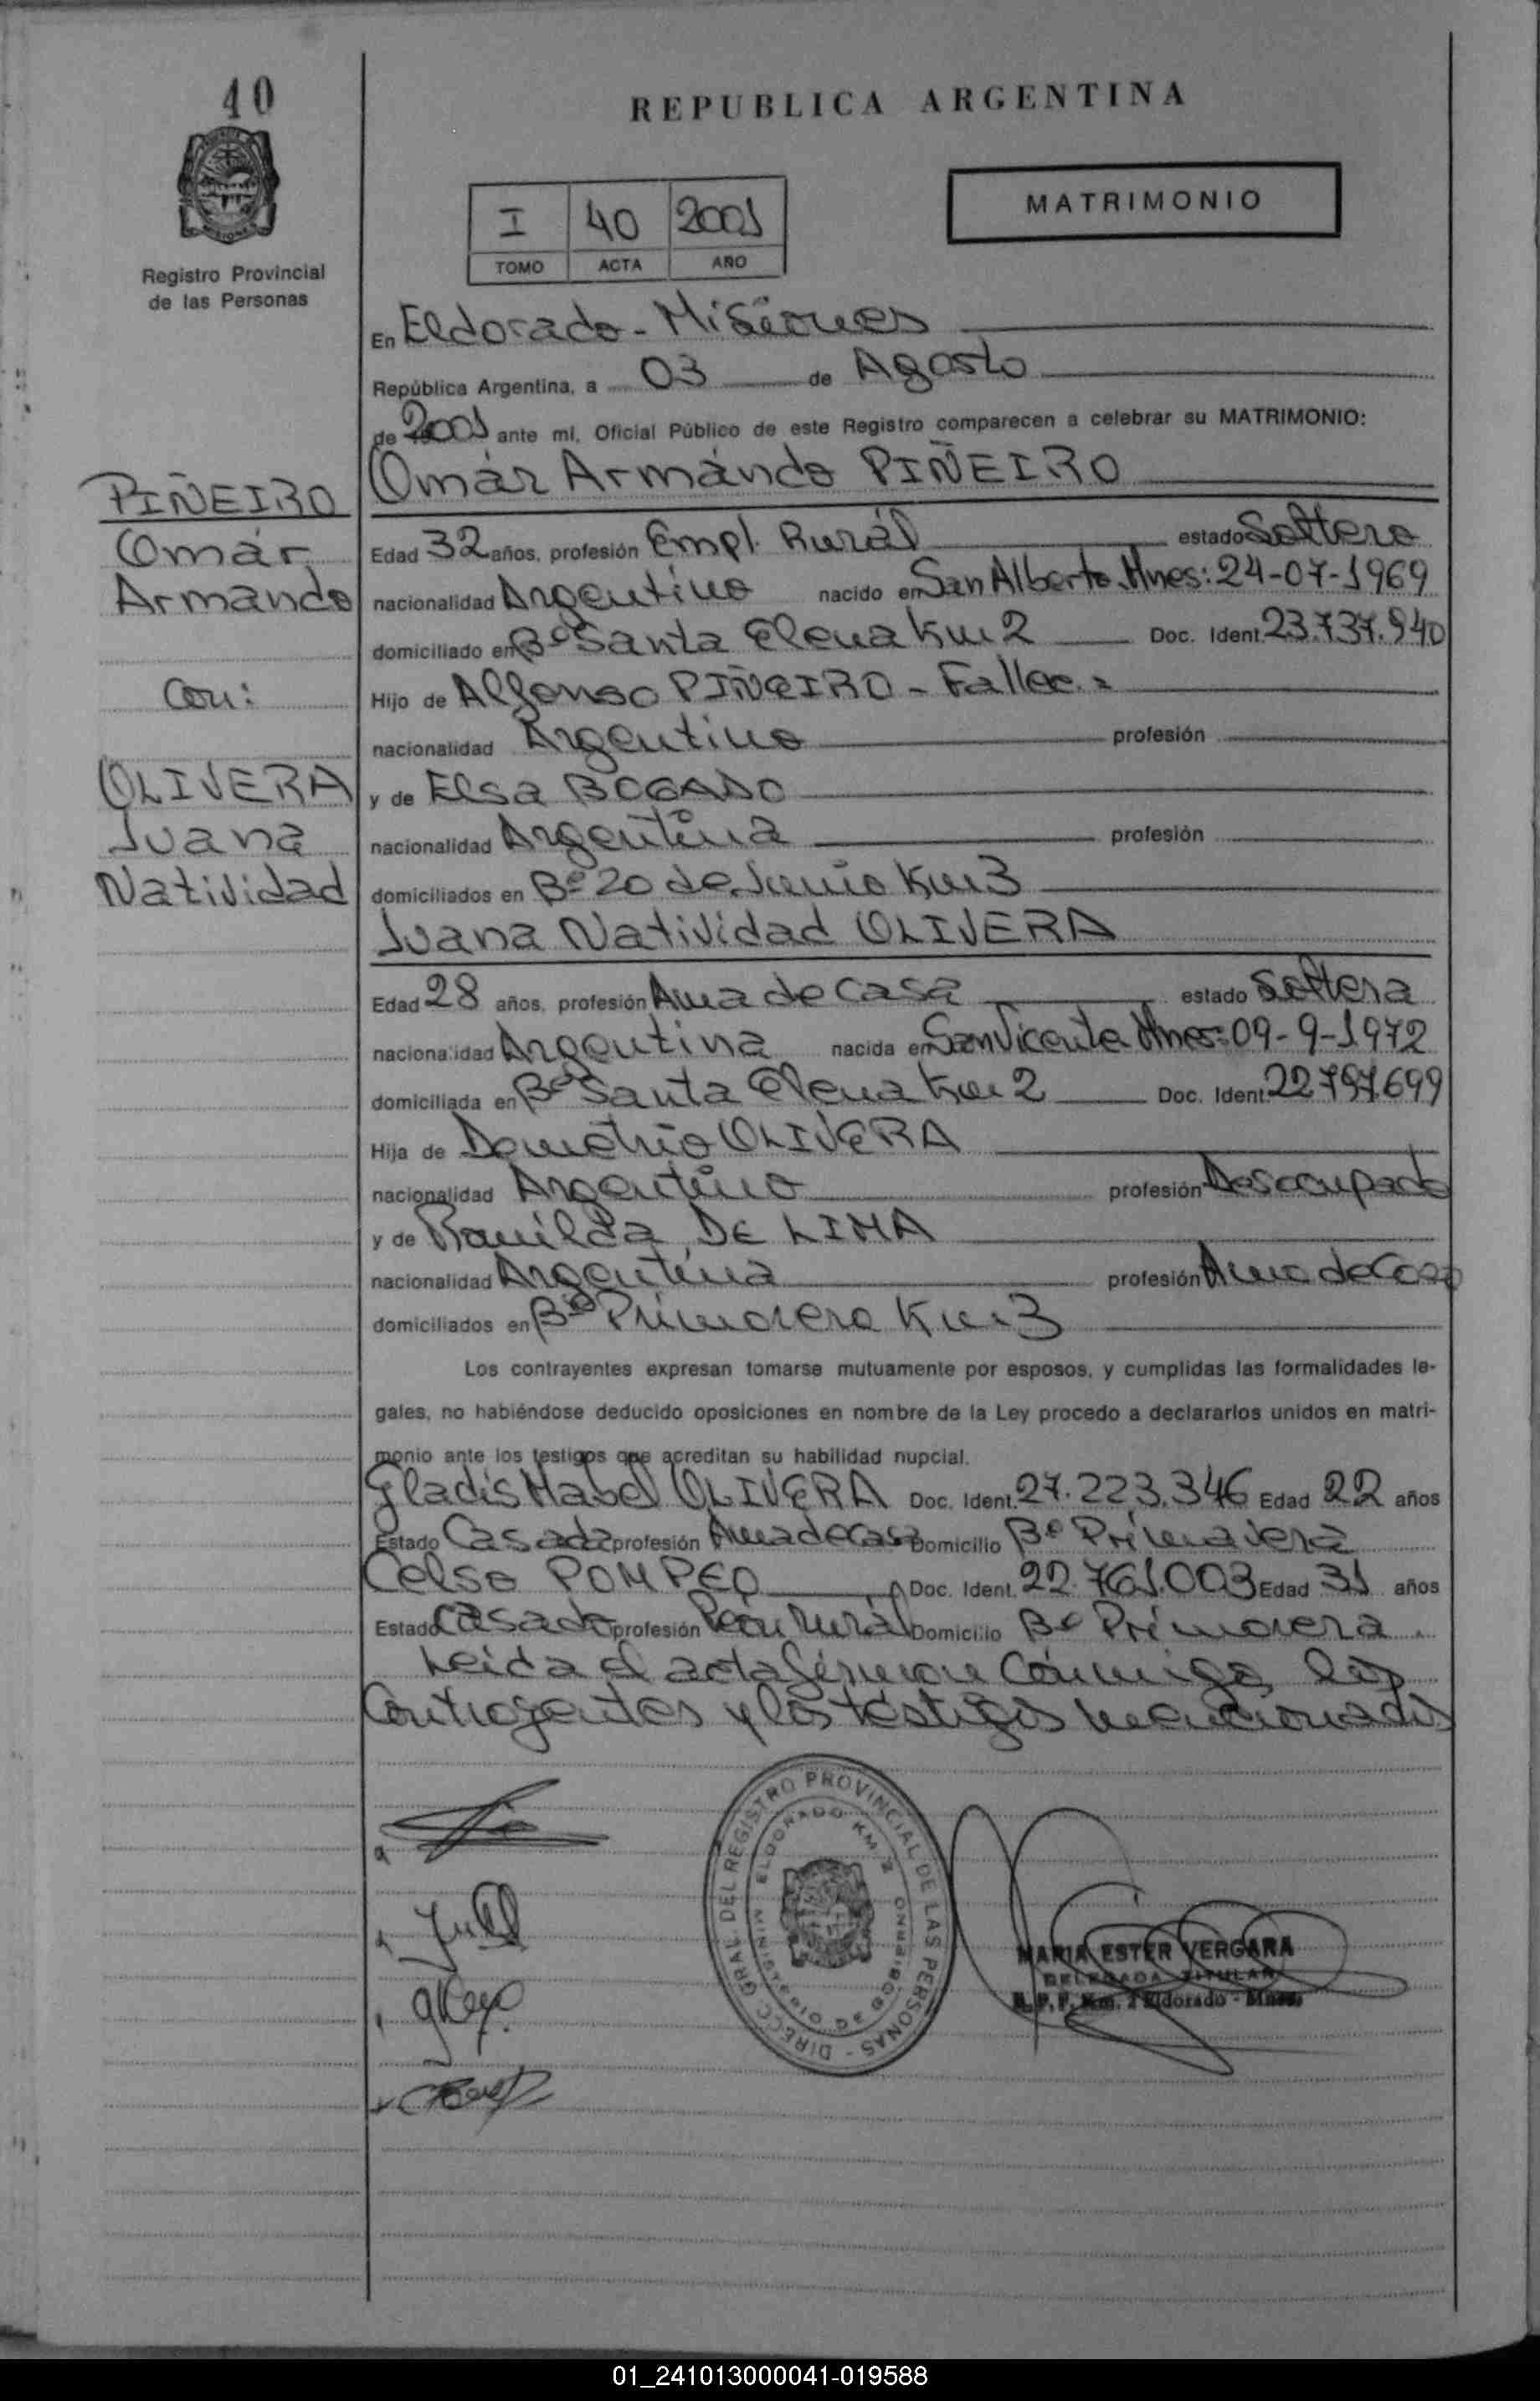 40
REPUBLICA ARGENTINA
MATRIMONIO
I 40 2001
TOMO ACTA AÑO
Registro Provincial
de las Personas
En Eldorado - Misiones
República Argentina, a 03 de Agosto
de 2001 ante mi, Oficial Público de este Registro comparecen a celebrar su MATRIMONIO:
Omár Armándo PIÑEIRO
PIÑEIRO
Omár
Armándo
Con:
OLIVERA
Juana
Natividad
Edad 32 años, profesión Empl. Rurál estado Soltero
nacionalidad Argentino nacido en San Alberto Mnes: 24-07-1969
domiciliado en Bº Santa Elena Km 2 Doc. Ident. 23.737.940
Hijo de Alfonso PIÑEIRO - Fallec. =
nacionalidad Argentino profesión
y de Elsa BOGADO
nacionalidad Argentina profesión
domiciliados en Bº 20 de Junio Km 3
Juana Natividad OLIVERA
Edad 28 años, profesión Ama de Casa estado Soltera
nacionalidad Argentina nacida en San Vicente Mnes: 09-9-1972
domiciliada en Bº Santa Elena Km 2 Doc. Ident. 22.797.699
Hija de Demetrio OLIVERA
nacionalidad Argentino profesión Desocupado
y de Romilda DE LIMA
nacionalidad Argentina profesión Ama de Casa
domiciliados en Bº Primavera Km 3
Los contrayentes expresan tomarse mutuamente por esposos, y cumplidas las formalidades le-
gales, no habiéndose deducido oposiciones en nombre de la Ley procedo a declararlos unidos en matri-
monio ante los testigos que acreditan su habilidad nupcial.
Gladis Mabel OLIVERA Doc. Ident. 27.223.346 Edad 22 años
Estado Casada profesión Ama de Casa Domicilio Bº Primavera
Celso POMPEO Doc. Ident. 22.761.003 Edad 31 años
Estado Casado profesión Peón Rurál Domicilio Bº Primavera.
Leída el acta firman conmigo, los
Contrayentes y los testigos mencionados
DIRECC. GRAL. DEL REGISTRO PROVINCIAL DE LAS PERSONAS -
MINISTERIO DE GOBIERNO
ELDORADO KM 2
MARIA ESTER VERGARA
DELEGADA TITULAR
R. P. P. Km. 2 Eldorado - Mnes.
01_241013000041-019588